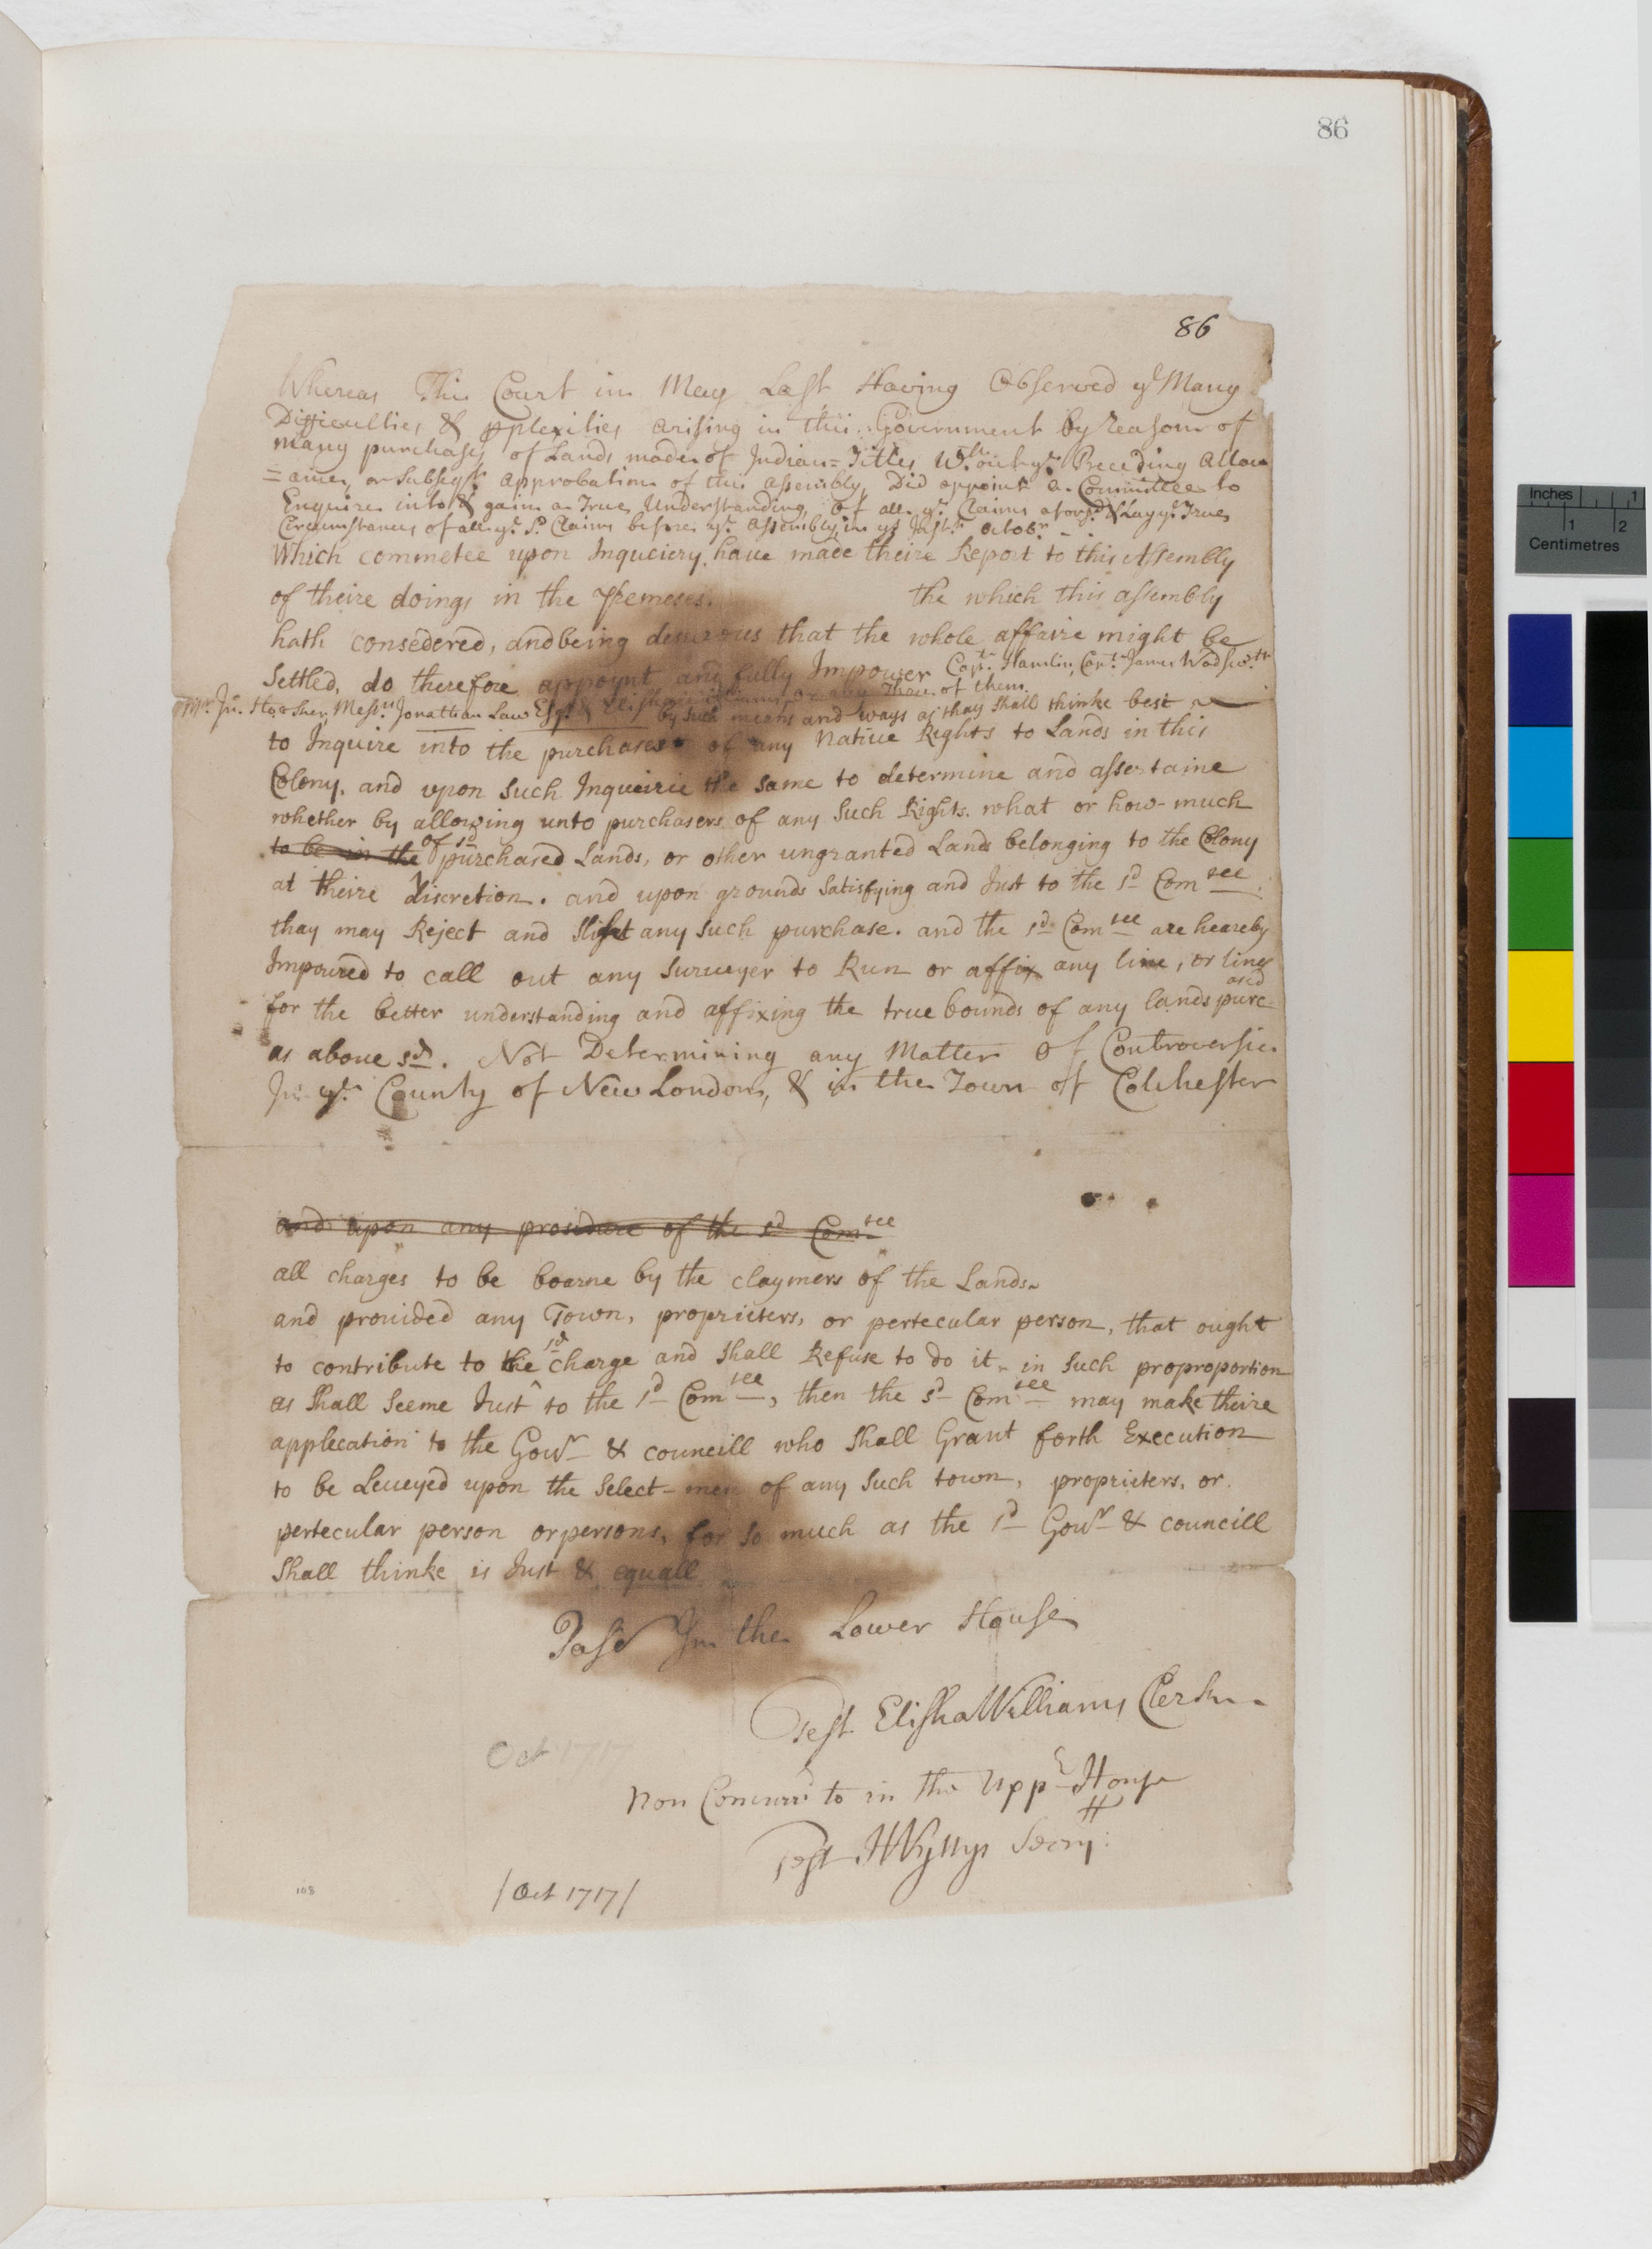 86
86
Whereas This Court in May Last Having Observed yᵉ Many
Difficulties & pplexities arising in this Government by reason of
many purchases of Lands made of Indian=Titles Wᵗʰout yᵉ Preceding Allow
=ance, or Subseqᵗ approbation of this assembly, Did appoint a Committee to
Enquire into & gain a True Understanding of all yᵉ Claims aforsᵈ & Lay yᵉ True
Circumstances of all yᵉ sᵈ Claims before yᵉ assembly in yᵉ Instᵗ octobʳ
Which commetee upon Inqueiery have made theire Report to this Assembly
of theire doings in the premeses. the which this assembly
hath consedered, and being desirous that the whole affaire might be
Settled, do therefore appoynt and fully Impower Capᵗ Hamlin, Capᵗ James Wadswᵗʰ
Mʳ Jnᵒ Hooker, Messʳˢ Jonathan Law Esqʳ & Elisha Williams or any Three of them
by such means and ways as thay shall thinke best
to Inquire into the purchases of any Native Rights to Lands in this
Colony, and upon such Inqueirie the same to determine and assertaine
whether by allowing unto purchasers of any such Rights. what or how much
to be in the of sᵈ purchased Lands, or other ungranted Lands belonging to the Colony
at theire discretion. and upon grounds satisfying and Just to the sᵈ Comᵗᵉᵉ
thay may Reject and slight any such purchase. and the sᵈ Comᵗᵉᵉ are heareby
Impoured to call out any surveyer to Run or affix any line, or lines
for the better understanding and affixing the true bounds of any lands purc
ased
as above sᵈ. Not Determining any Matter of Controversie
In yᵉ County of New London, & in the Town of Colchester
and upon any prosidure of the sᵈ Comᵗᵉᵉ
all charges to be boarne by the claymers of the Lands
and provided any Town, proprieters, or pertecular person, that ought
to contribute to the sᵈ charge and shall Refuse to do it in such proproportion
as shall seeme Just to the sᵈ Comᵗᵉᵉ, then the sᵈ Comᵗᵉᵉ may make theire
applecation to the Govʳ & councill who shall Grant forth Execution
to be Leueyed upon the select-men of any such town, proprieters, or
pertecular person or persons, for so much as the sᵈ Govʳ & councill
shall thinke is Just & equall
Pasᵈ In the Lower House
Test Elisha Williams Clerk
Oct 1717
Non Concurrᵈ to in the Uppʳ House
Test HWyllys Secry:
108
/Oct 1717/
Inches 1
1 2
Centimetres